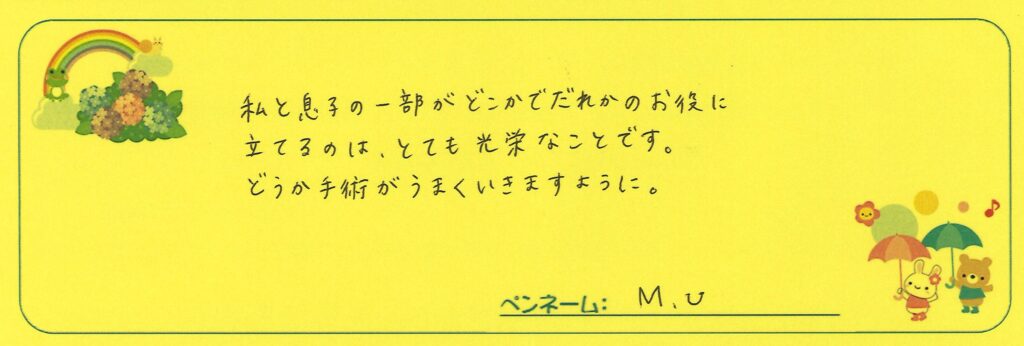 私と息子の一部がどこかでだれかのお役に
立てるのは、とても光栄なことです。
どうか手術がうまくいきますように。
ペンネーム: M.U